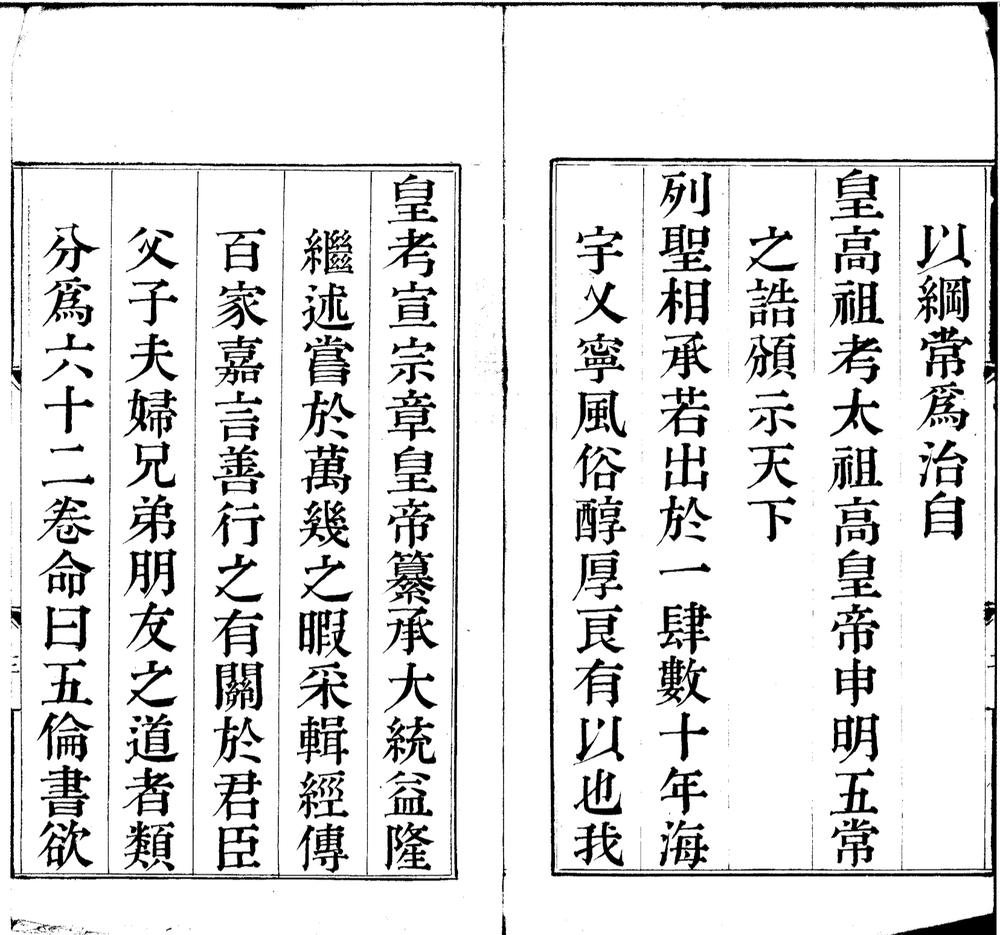 以綱常爲治自
皇高祖考太祖高皇帝申明五常
之誥頒示天下
列聖相承若出於一肆數十年海
宇乂寧風俗醇厚良有以也我
皇考宣宗章皇帝纂承大統益隆
繼述嘗於萬幾之暇采輯經傳
百家嘉言善行之有關於君臣
父子夫婦兄弟朋友之道者類
分爲六十二卷命曰五倫書欲
三